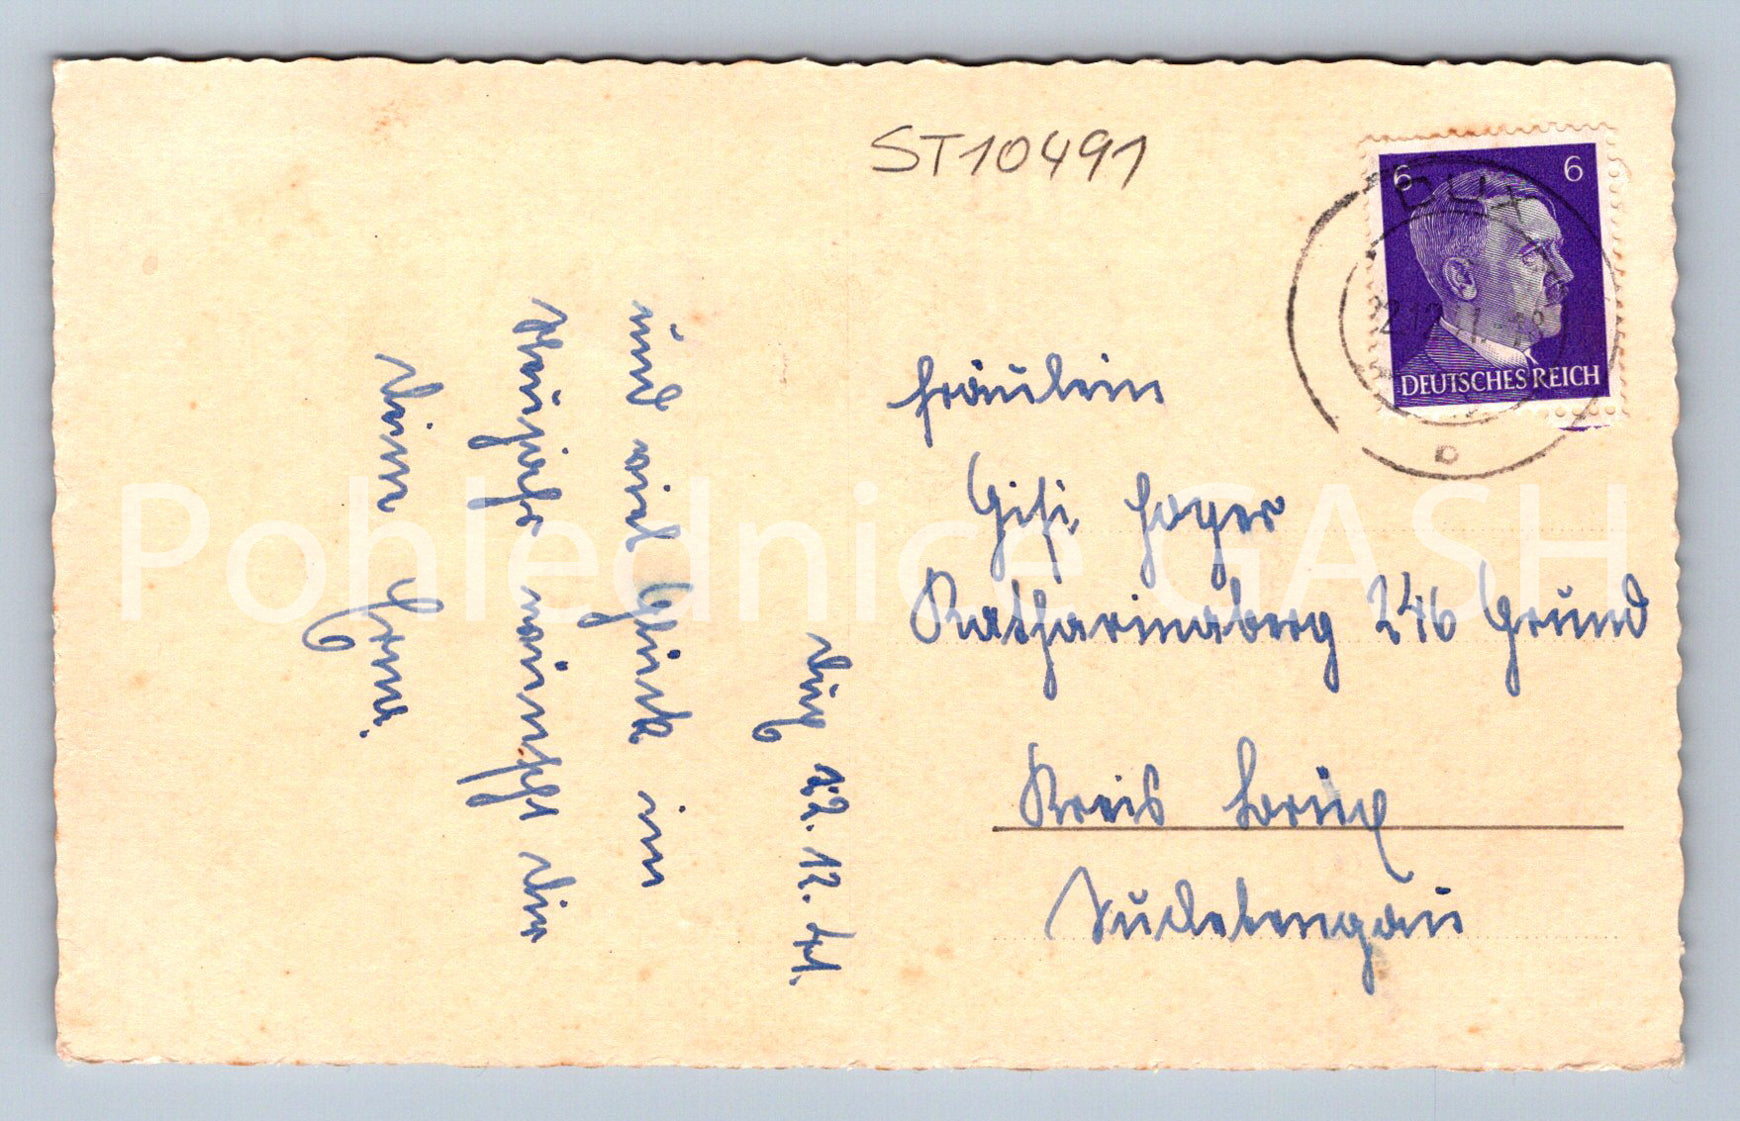 ST10491
6 6
DUX
22.12.41.-18
DEUTSCHES REICH
b
Fräulein
Gisi Hoyer
Katharinaberg 246 Grund
Kreis Brüx
Sudetengau
Dux 22.12.41.
und viel Glück im
Neujahre wünscht dir
deine
Pohlednice GASH